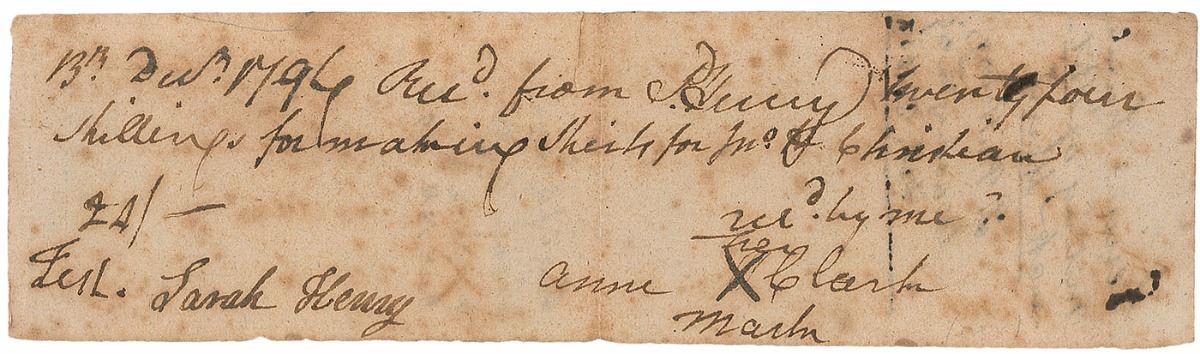 13th Decr. 1794 Recd. from P. Henry twenty four
shillings for making shirts for Jno. H Christian
24/ —
recd. by me
her
Test. Sarah Henry Anne X Clark
mark